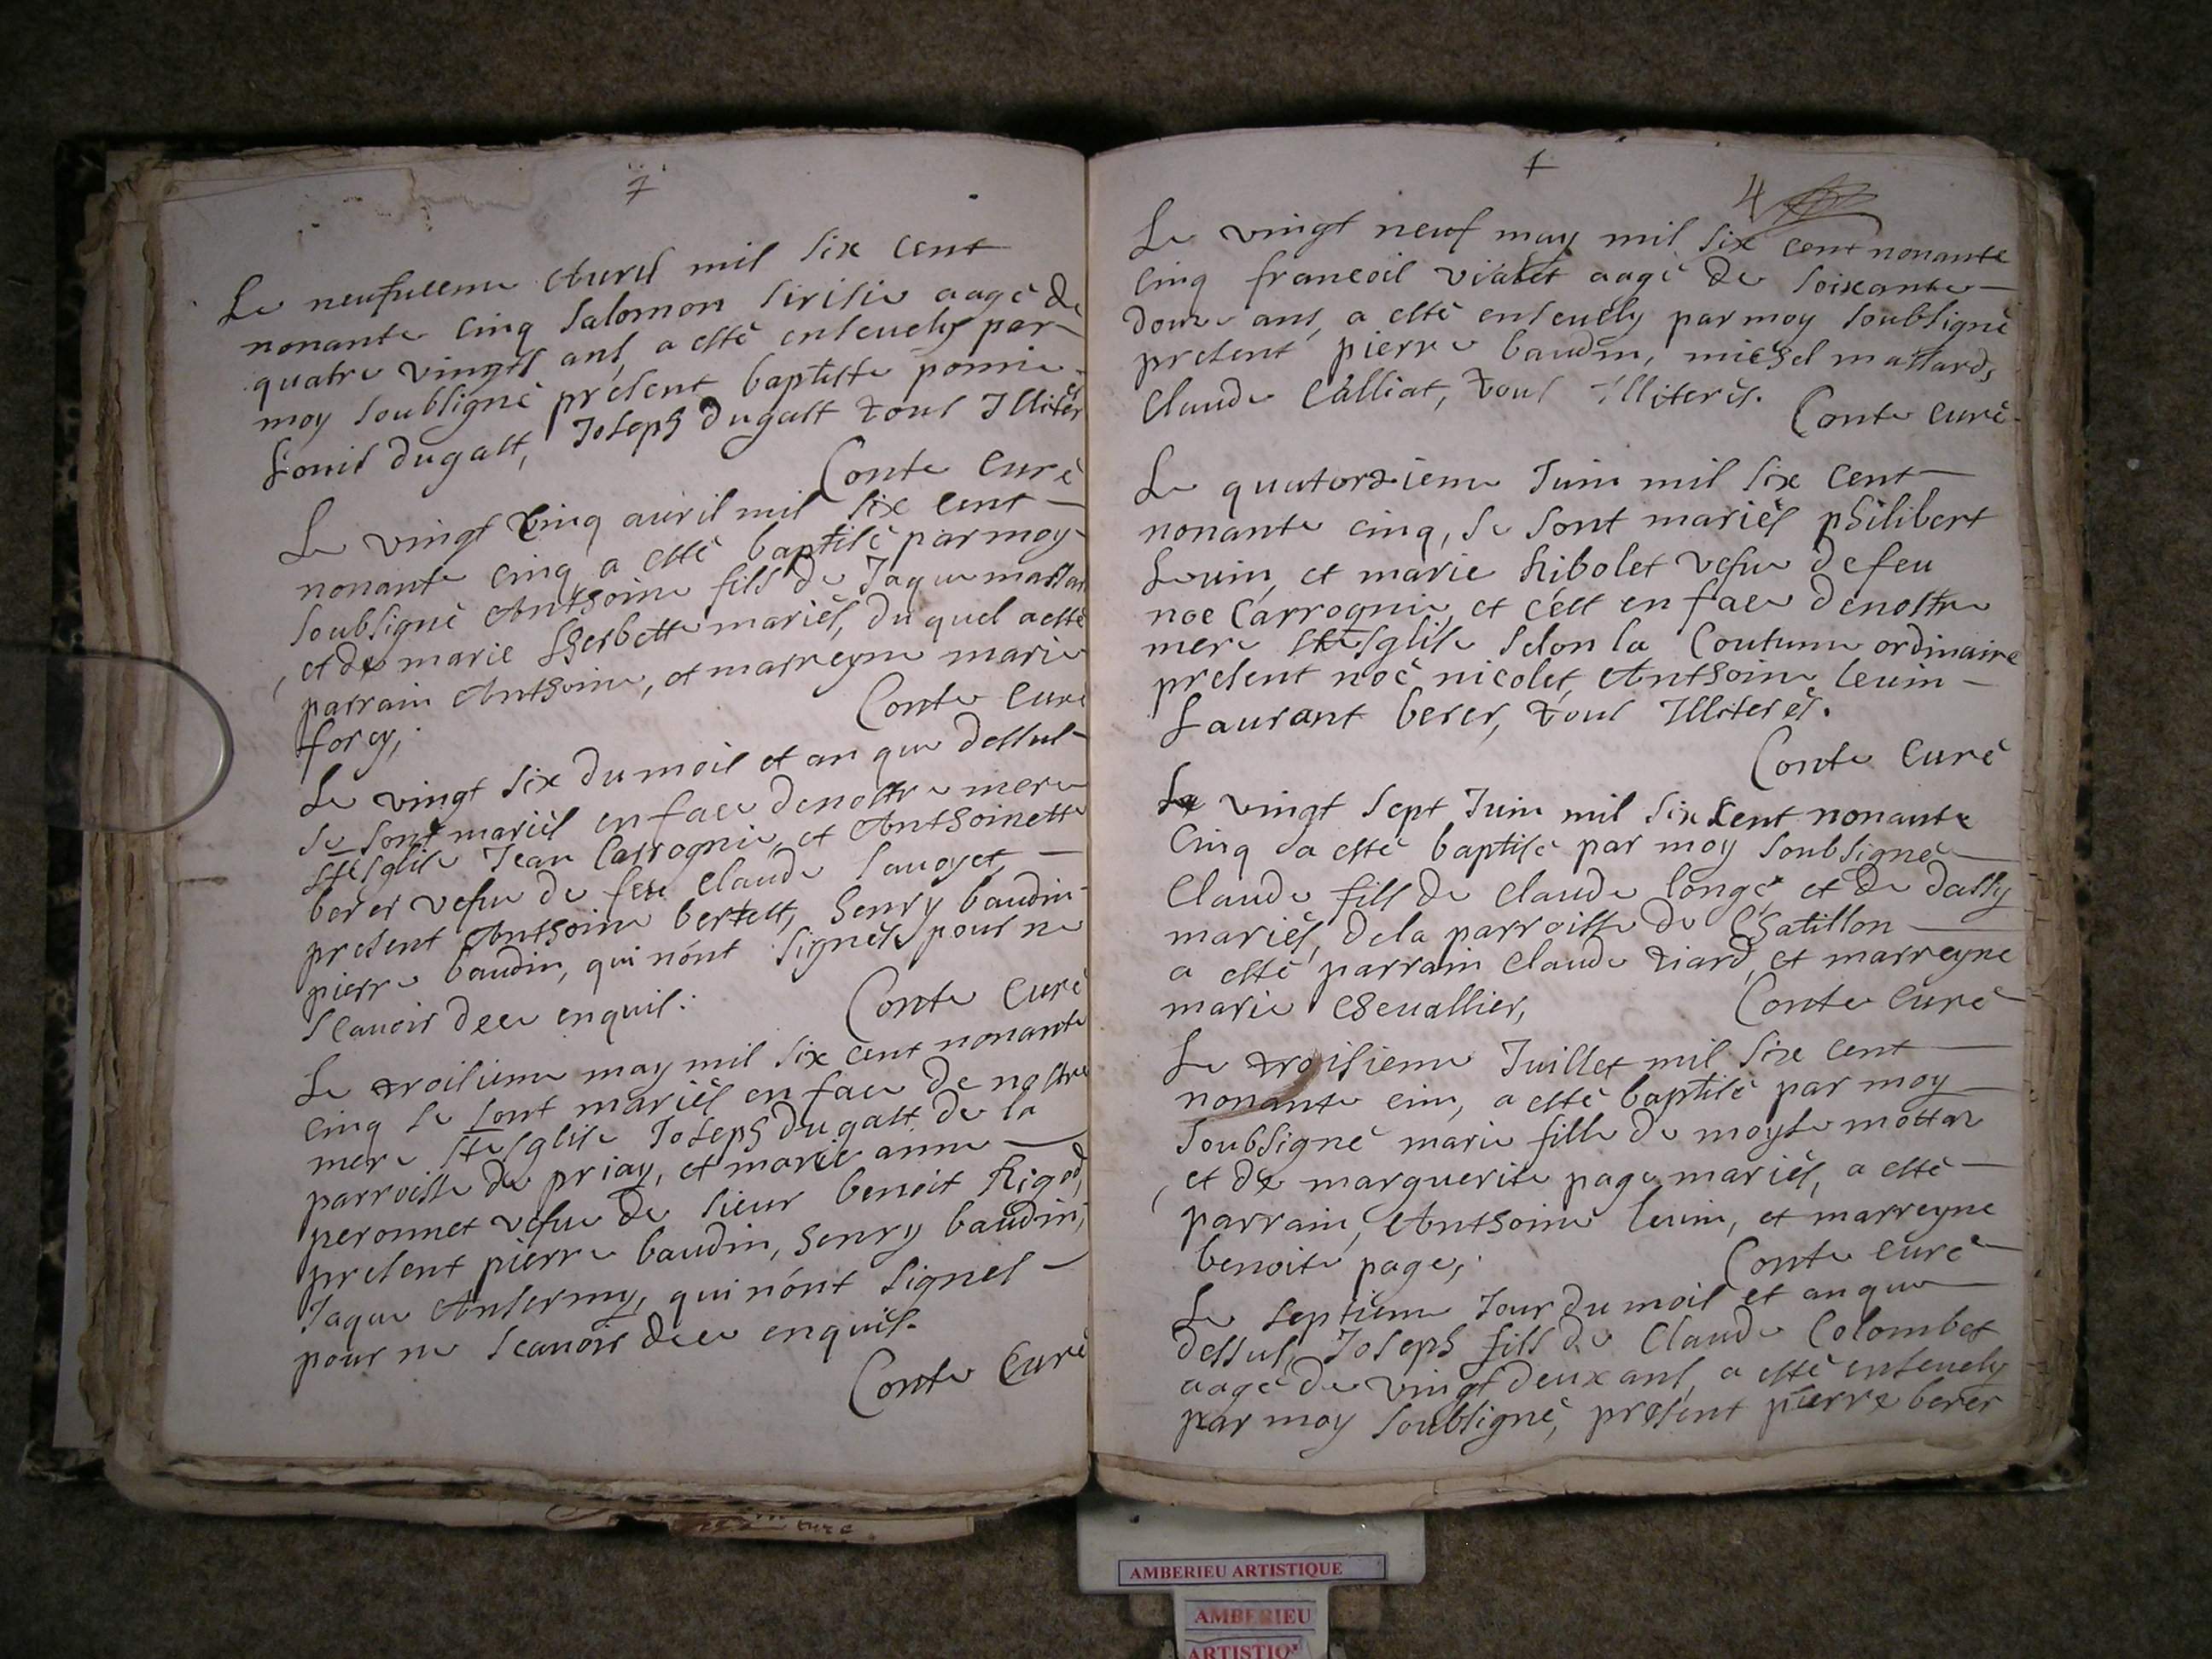 Le neufuieme Auril mil six cent
nonante cinq Salomon Sirisie aagé de
quatre vingts ans, a esté enseuely par
moy soubsigné présent baptiste
Louis dugast, Joseph dugast tous Illiterés
Conte Curé
Le vingt cinq auril mil six cent
nonante cinq a esté baptisé par moy
soubsigné Anthoine fils de Jaque
et de marie Gherbette mariés, du quel a esté
parrain Anthoine, et marreyne marie
forey,
Conte Curé
Le vingt six du mois et an que dessus
se sont mariés en face de nostre mere
Ste Esglise Jean Carrognie, et Anthoinette
berer vefue de feu Claude sauoyet,
présent Anthoine bertelt, henry baudin
pierre baudin, qui n'ont signés pour ne
scauoir de ce enquis.
Conte Curé
Le troisieme may mil six cent nonante
cinq se sont mariés en face de nostre
mere Ste Esglise Joseph dugast de la
parroisse de priay, et marie anne
peronnet vefue de sieur benoit Rigod,
présent pierre baudin, henry baudin,
Jaque Ansermy, qui n'ont signes
pour ne scauoir de ce enquis.
Conte Curé
4
Le vingt neuf may mil six cent nonante
cinq francois vialet aagé de soixante
douze ans, a esté enseuely par moy soubsigné
present pierre baudin, michel massard,
Claude Calliat, tous Illiterés.
Conte curé
Le quatorzieme Juin mil six cent
nonante cinq, se sont mariés philibert
Leuin, et marie Ribolet vefue de feu
noe Carrognie, et c'est en face de nostre
mere Ste Esglise selon la Coutume ordinaire
présent noé nicolet, Anthoine leuin
Laurant berer, tous Illiterés.
Conte Curé
Le vingt sept Juin mil six cent nonante
cinq a esté baptisé par moy soubsigné
Claude fils de Claude longe, et de dassy
mariés, de la parroisse de Chatillon
a esté parrain Claude tiard, et marreyne
marie Cheuallier,
Conte Curé
Le troisieme Juillet mil six cent
nonante cinq, a esté baptisé par moy
soubsigné marie fille de moyse mottaz
et de marguerite page mariés, a esté
parrain, Anthoine leuin, et marreyne
benoite page,
Conte curé
Le septieme Jour du mois et an que
dessus, Joseph fils de Claude Colombet
aagé de vingt deux ans, a esté enseuely
par moy soubsigné, présent pierre berer
curé
AMBERIEU ARTISTIQUE
AMBERIEU
ARTISTIQ